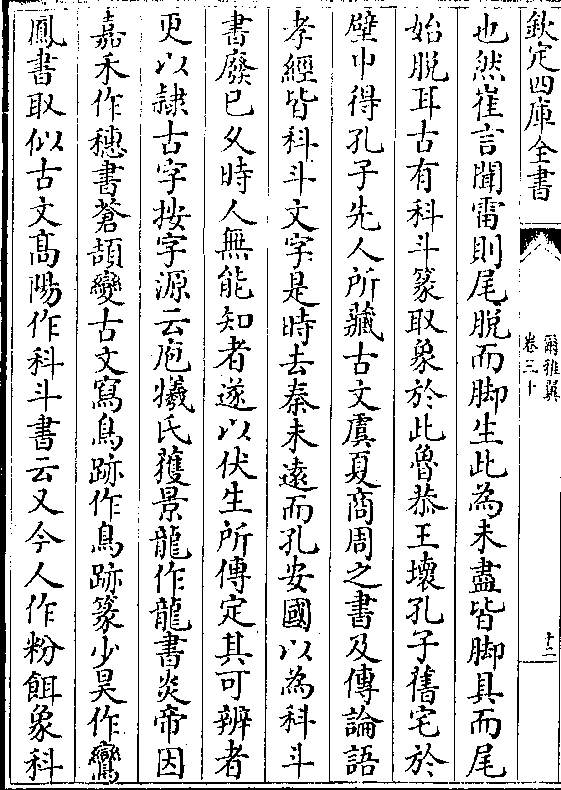 欽定四庫全書
爾雅翼
卷三十
十二
也然崔言聞雷則尾脱而脚生此為未盡皆脚具而尾
始脱耳古有科斗篆取象於此魯恭王壞孔子舊宅於
壁中得孔子先人所藏古文虞夏商周之書及傳論語
孝經皆科斗文字是時去秦未遠而孔安國以為科斗
書廢已久時人無能知者遂以伏生所傳定其可辨者
更以隷古字按字源云庖犧氏獲景龍作龍書炎帝因
嘉禾作穗書蒼頡變古文寫鳥跡作鳥跡篆少昊作鸞
鳳書取似古文高陽作科斗書云又今人作粉餌象科